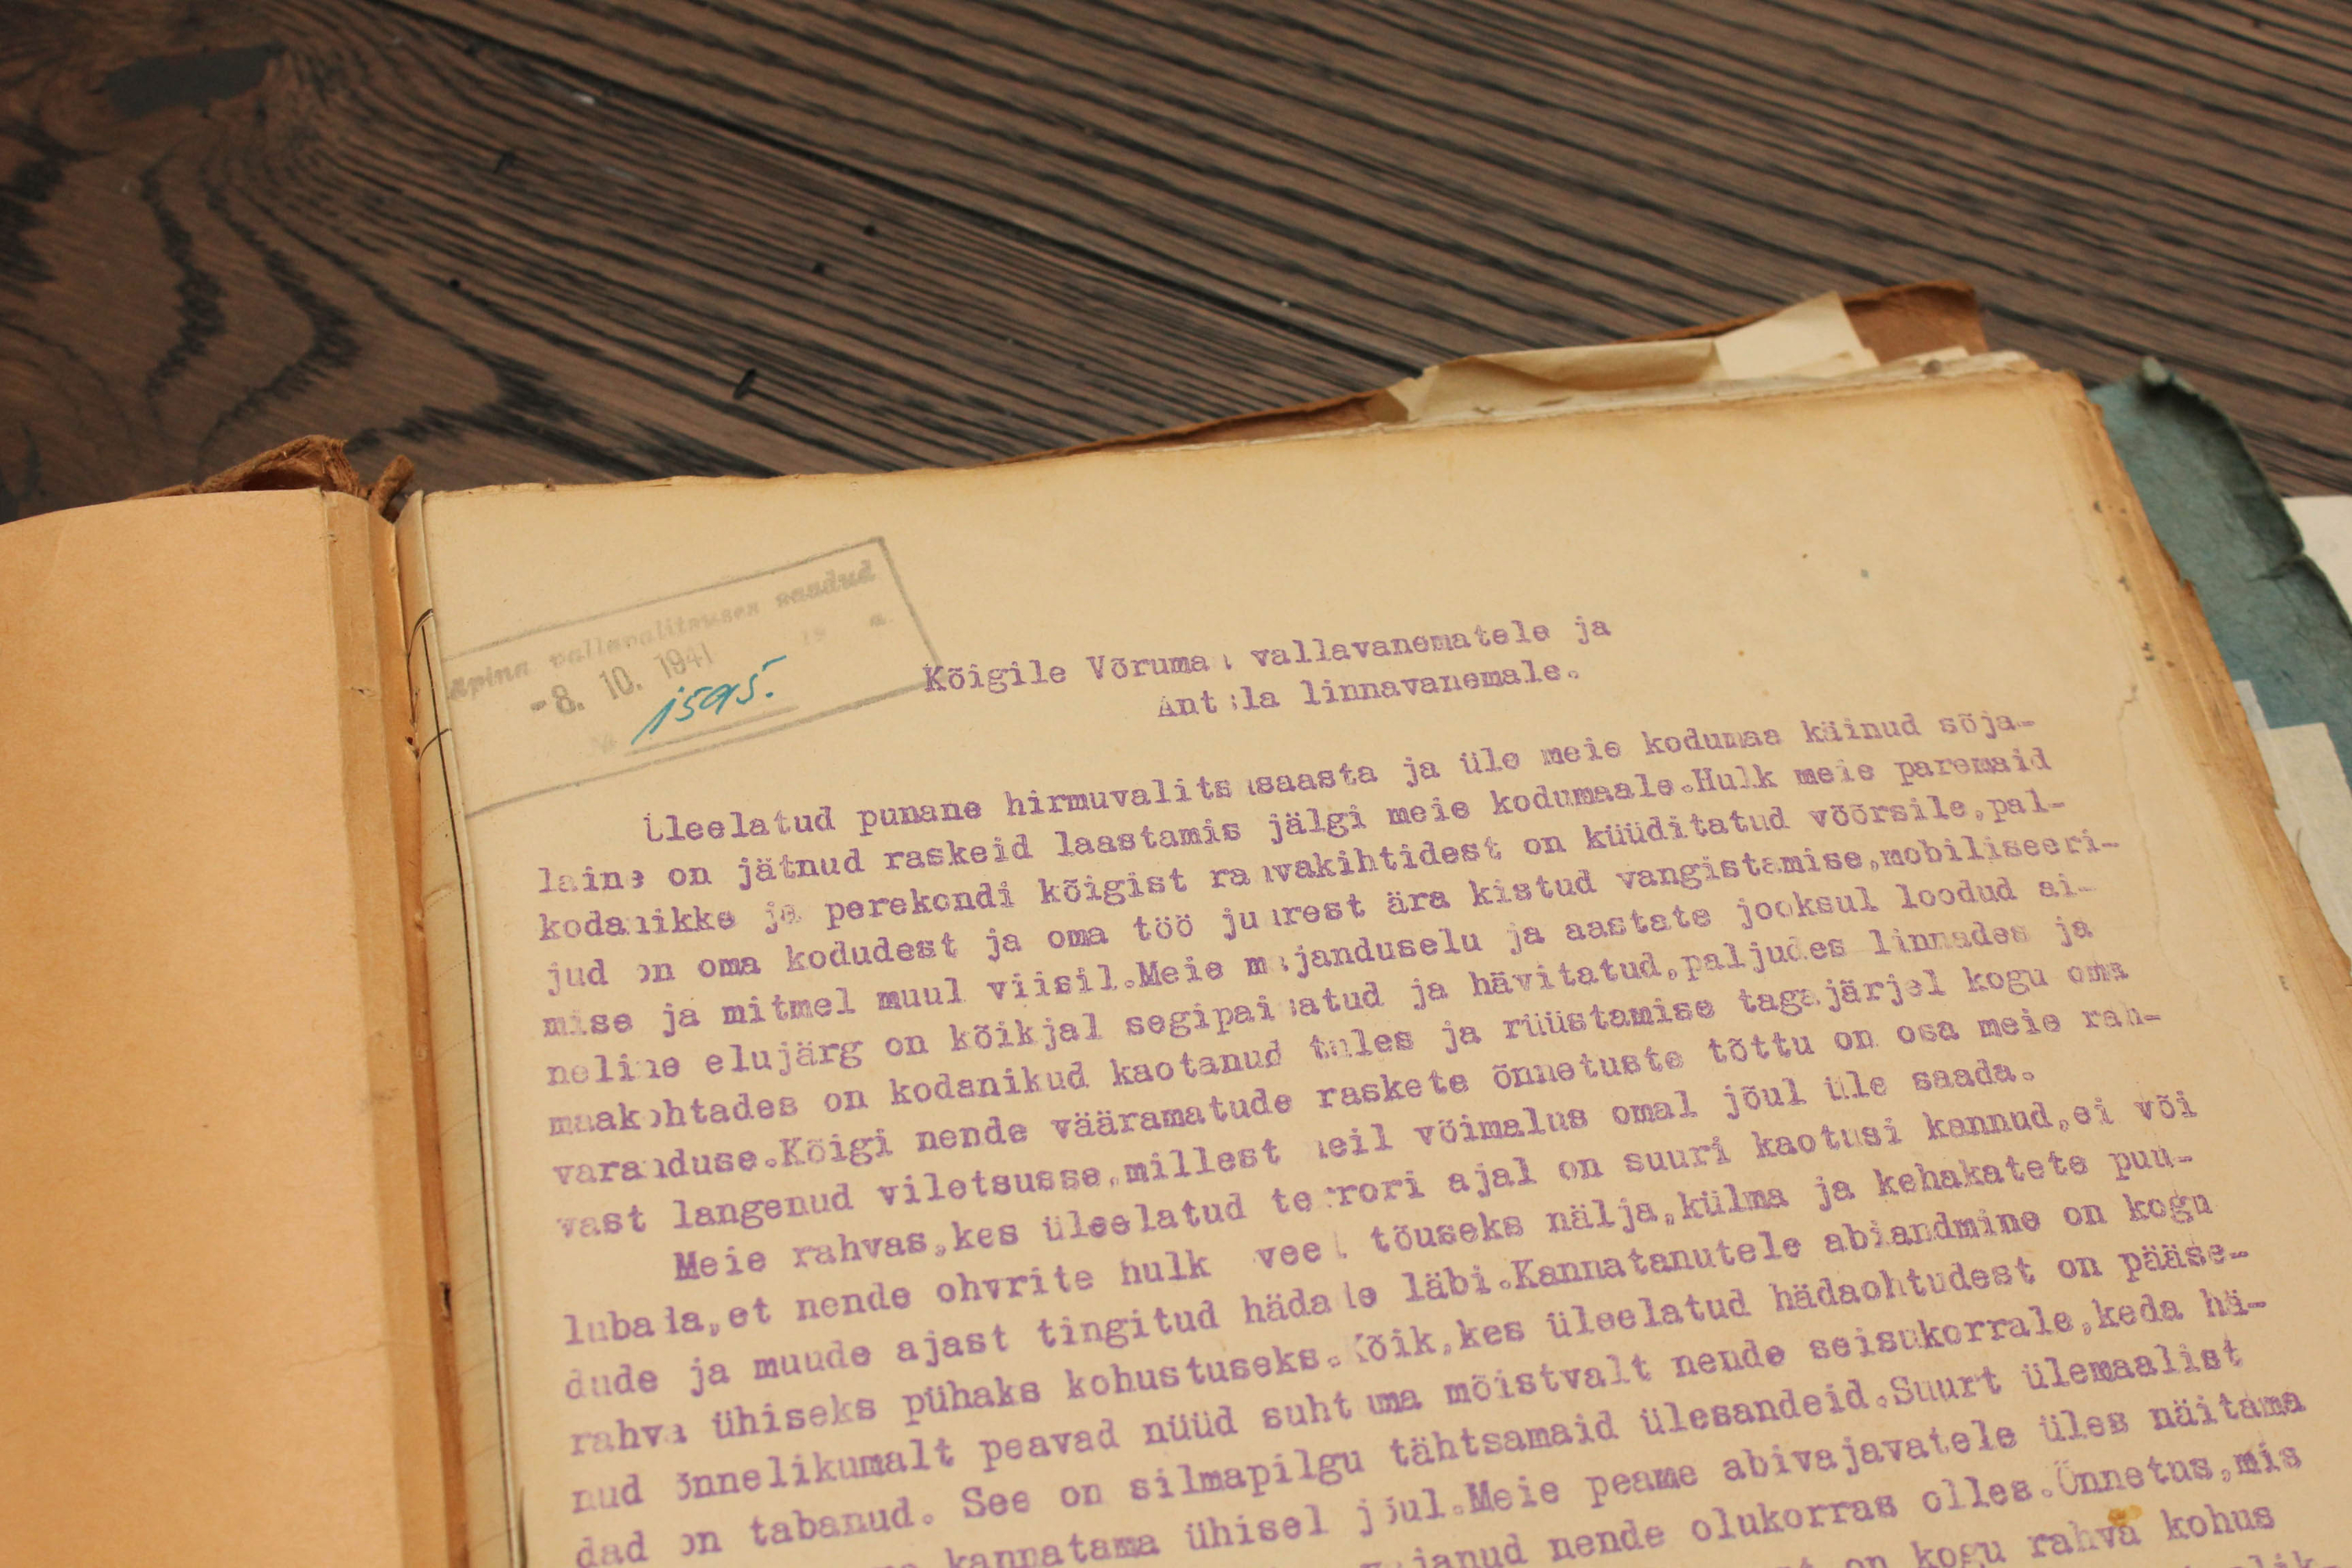 vallavalitsuses saadud
-8. 10. 1941
19 a.
№ 1595.
Kõigile Võrumaa vallavanematele ja
Antsla linnavanemale.
Üleelatud punane hirmuvalitsusaasta ja üle meie kodumaa käinud sõja-
laine on jätnud raskeid laastamis jälgi meie kodumaale.Hulk meie paremaid
kodanikke ja perekondi kõigist rahvakihtidest on küüditatud võõrsile,pal-
jud on oma kodudest ja oma töö juurest ära kistud vangistamise,mobiliseeri-
mise ja mitmel muul viisil.Meie majanduselu ja aastate jooksul loodud ai-
neline elujärg on kõikjal segipaisatud ja hävitatud,paljudes linnades ja
maakohtades on kodanikud kaotanud tules ja rüüstamise tagajärjel kogu oma
varanduse.Kõigi nende vääramatude raskete õnnetuste tõttu on osa meie rah-
vast langenud viletsusse,millest neil võimalus omal jõul üle saada.
Meie rahvas,kes üleelatud terrori ajal on suuri kaotusi kannud,ei või
lubada,et nende ohvrite hulk veel tõuseks nälja,külma ja kehakatete puu-
dude ja muude ajast tingitud hädade läbi.Kannatanutele abiandmine on kogu
rahva ühiseks pühaks kohustuseks.Kõik,kes üleelatud hädaohtudest on pääse-
nud õnnelikumalt peavad nüüd suhtuma mõistvalt nende seisukorrale,keda hä-
dad on tabanud. See on silmapilgu tähtsamaid ülesandeid.Suurt ülemaalist
kannatama ühisel jõul.Meie peame abivajavatele üles näitama
nende olukorras olles.Õnnetus,mis
on kogu rahva kohus